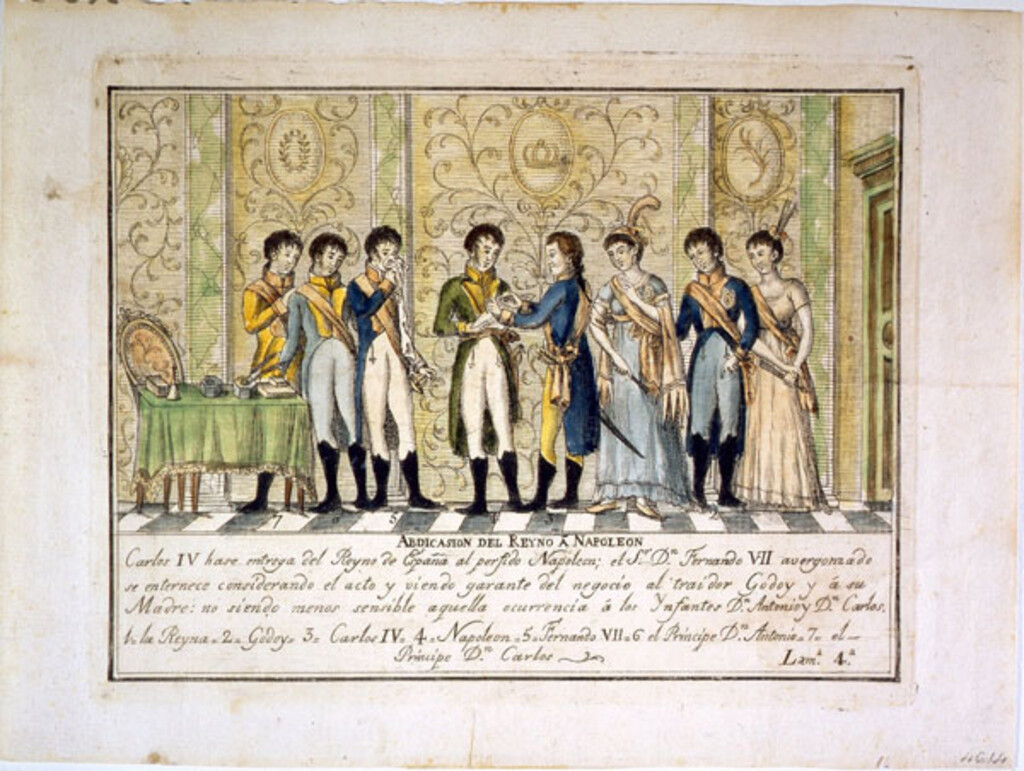 7 6 5 4 3 2
ABDICASION DEL REYNO Á NAPOLEON
Carlos IV hase entrega del Reyno de España al perfido Napoleon; el S.r D.n Fernando VII avergonzado
se enternece considerando el acto y viendo garante del negocio al traidor Godoy y á su
Madre: no siendo menos sensible aquella ocurrencia á los Ynfantes D.n Antonio y D.n Carlos.
1. la Reyna. 2. Godoy. 3. Carlos IV. 4. Napoleon. 5. Fernando VII. 6 el Principe D.n Antonio. 7. el
Principe D.n Carlos
Lam.a 4.a